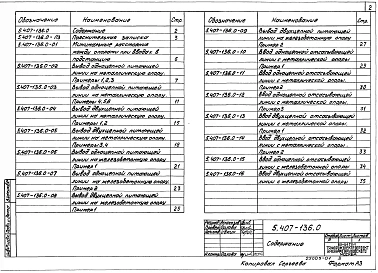 2
Обозначение Наименование Стр.
5.407-136.0 Содержание 2
5.407-136.0-ПЗ Пояснительная записка 3
5.407-136.0-01 Минимальные расстояния
между опорами при вводах в
подстанцию 5
5.407-136.0-02 Вывод одноцепной питающей
линии на металлическую опору.
Примеры 1,2,3 7
5.407-136.0-03 Вывод одноцепной питающей
линии на металлическую опору.
Примеры 4,5,6 11
5.407-136.0-04 Вывод двухцепной питающей
линии на металлическую опору.
Примеры 1,2 15
5.407-136.0-05 Вывод двухцепной питающей
линии на металлическую опору.
Примеры 3,4 18
5.407-136.0-06 Вывод одноцепной питающей
линии на железобетонную опору.
Пример 1 21
5.407-136.0-07 Вывод одноцепной питающей
линии на железобетонную опору.
Пример 2 23
5.407-136.0-08 Вывод двухцепной питающей
линии на железобетонную опору.
Пример 1 25
Обозначение Наименование Стр.
5.407-136.0-09 Вывод двухцепной питающей
линии на железобетонную опору.
Пример 2 27
5.407-136.0-10 Ввод одноцепной отсасывающей
линии с металлической опоры.
Пример 1 29
5.407-136.0-11 Ввод одноцепной отсасывающей
линии с металлической опоры.
Пример 2 30
5.407-136.0-12 Ввод одноцепной отсасывающей
линии с металлической опоры.
Пример 3 31
5.407-136.0-13 Ввод двухцепной отсасывающей
линии с металлической опоры.
Пример 1 32
5.407-136.0-14 Ввод двухцепной отсасывающей
линии с металлической опоры.
Пример 2 33
5.407-136.0-15 Ввод одноцепной отсасывающей
линии с железобетонной опоры 34
5.407-136.0-16 Ввод двухцепной отсасывающей
линии с железобетонной опоры 35
5.407-136.0
Содержание
Копировал Сергеева Формат А3